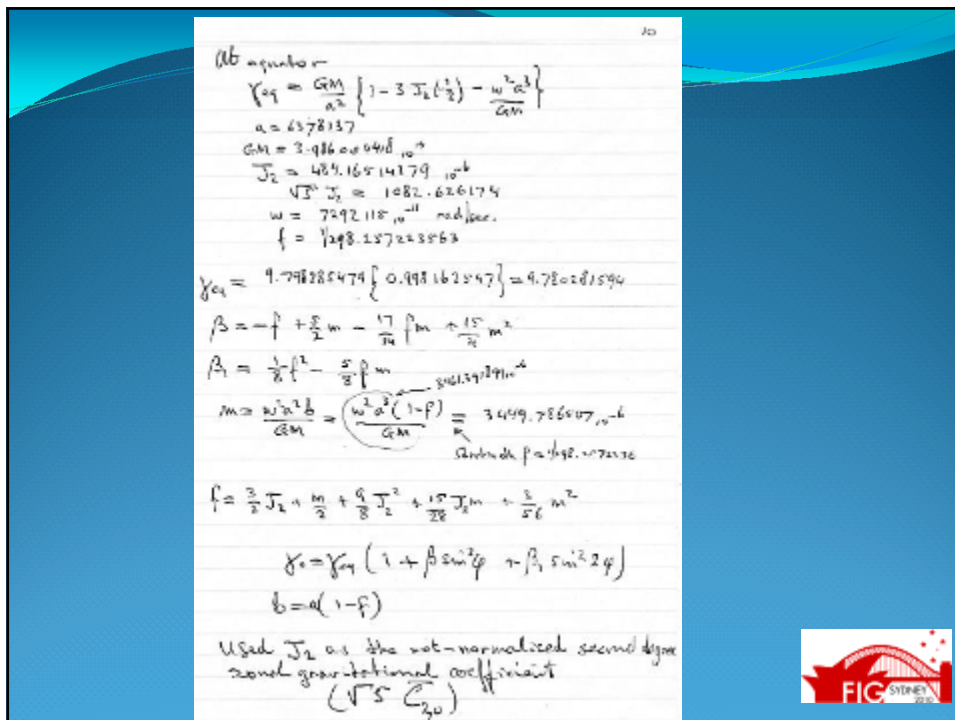 10
At equator
γeq = GM/a² { 1 - 3 J₂(½) - w²a³/GM }
a = 6378137
GM = 3.986004418 ₁₀
J₂ = 484.16514279 ₁₀-6
√5 J₂ = 1082.626174
w = 7292115 ₁₀-11 rad/sec.
f = 1/298.257223563
γeq = 9.798285479 { 0.998162547 } = 9.780281594
β = -f + 5/2 m - 17/14 fm + 15/4 m²
β₁ = 1/8 f² - 5/8 f m
m = w²a²b/GM = w²a³(1-f)/GM = 3449.786507 ₁₀-6
f = 3/2 J₂ + m/2 + 9/8 J₂² + 15/28 J₂m + 3/56 m²
γ₀ = γeq ( 1 + β sin²φ + β₁ sin²2φ )
b = a(1-f)
Used J₂ as the not-normalized second degree
zonal gravitational coefficient
(√5 C̄₂₀)
FIG SYDNEY
2010